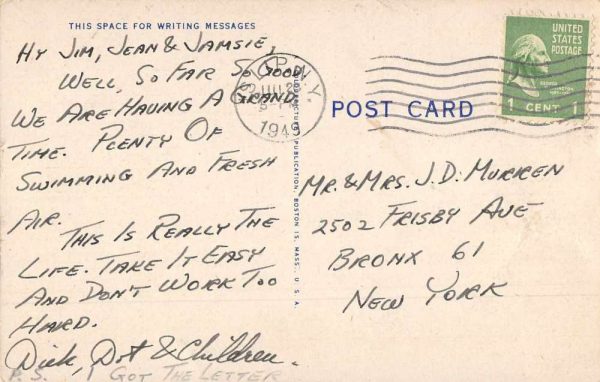 THIS SPACE FOR WRITING MESSAGES
HY JIM, JEAN & JAMSIE,
WELL, SO FAR SO GOOD
WE ARE HAVING A GRAND
TIME. PLENTY OF
SWIMMING AND FRESH
AIR.
THIS IS REALLY THE
LIFE. TAKE IT EASY
AND DON'T WORK TOO
HARD.
Dick, Dot & Children.
P.S. I GOT THE LETTER
PUBLICATION, BOSTON 15, MASS., U. S. A.
N.Y.
POST CARD
UNITED
STATES
POSTAGE
1 CENT 1
MR. & MRS. J. D. MURREN
2502 FRISBY AVE
BRONX 61
NEW YORK